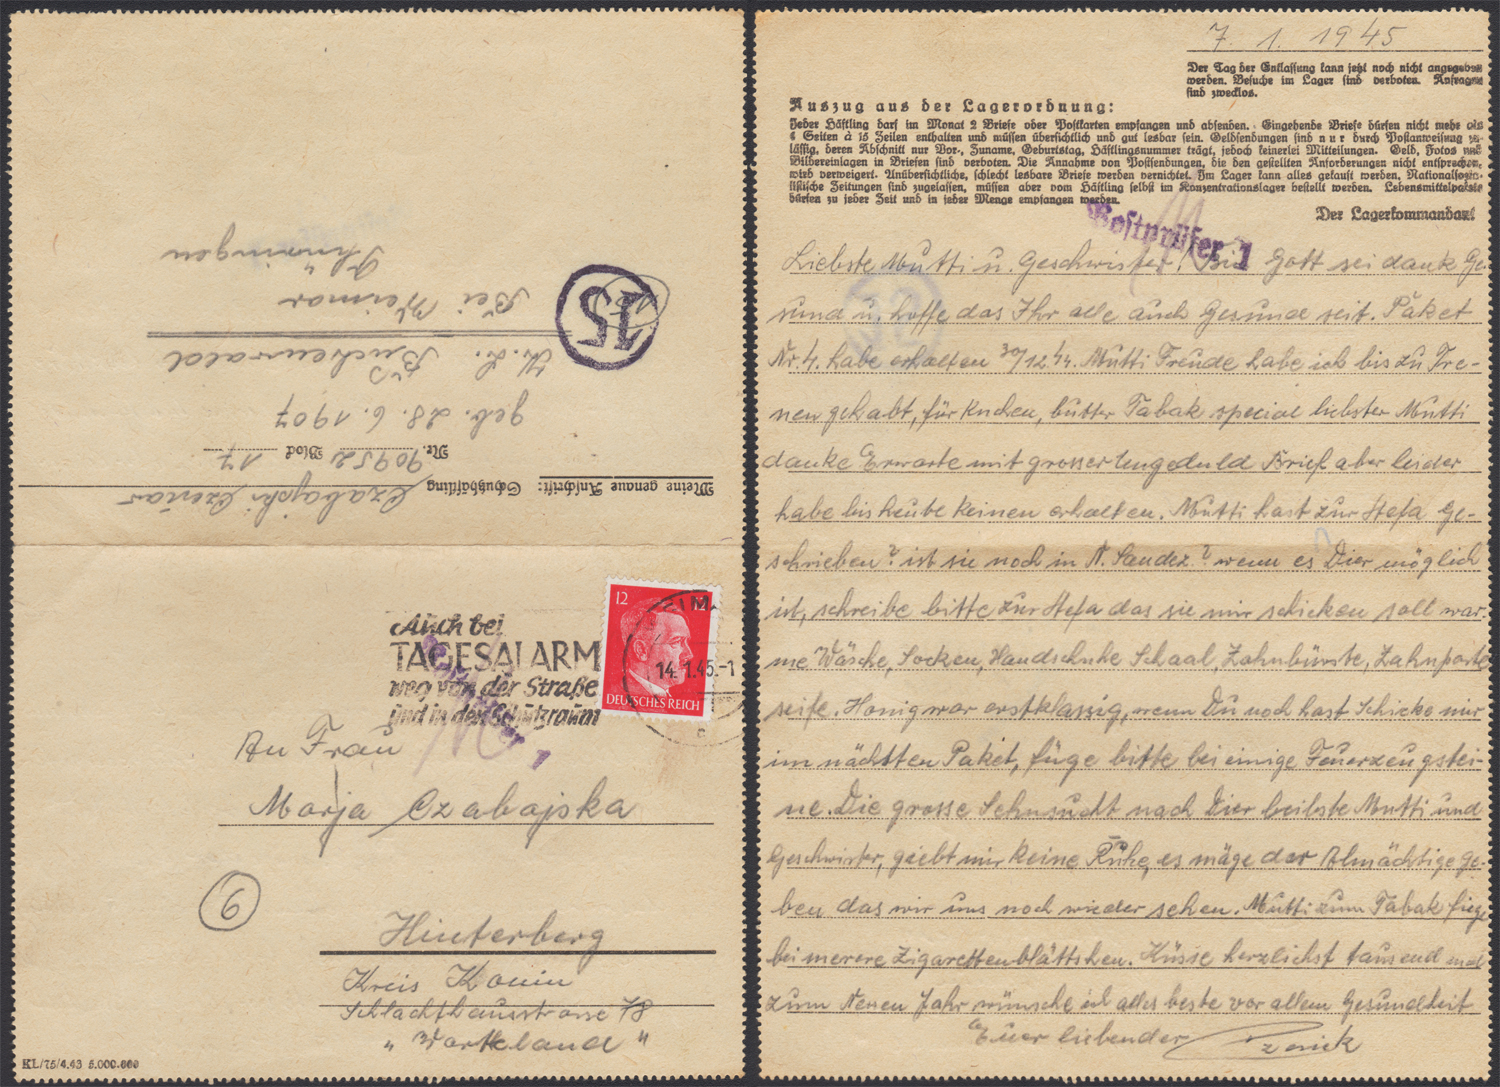 Meine genaue Anschrift:
Schutzhäftling
Czabajski Czesław
Nr. 90952 Block 17
geb. 28. 6. 1907
K. L. Buchenwald
Bei Weimar
Thüringen
15
Auch bei
TAGESALARM
weg von der Straße
und in den Schutzraum
Postprüfer 1
12 12
DEUTSCHES REICH
14.1.45.-1
An Frau
Marja Czabajska
6
Hinterberg
Kreis Konin
Schlachthausstrasse 78
„Wartheland"
KL/75/4.43 5.000.000
7. 1. 1945
Der Tag der Entlassung kann jetzt noch nicht angegeben
werden. Besuche im Lager sind verboten. Anfragen
sind zwecklos.
Auszug aus der Lagerordnung:
Jeder Häftling darf im Monat 2 Briefe oder Postkarten empfangen und absenden. Eingehende Briefe dürfen nicht mehr als
4 Seiten à 15 Zeilen enthalten und müssen übersichtlich und gut lesbar sein. Geldsendungen sind nur durch Postanweisung zu-
lässig, deren Abschnitt nur Vor-, Zuname, Geburtstag, Häftlingsnummer trägt, jedoch keinerlei Mitteilungen. Geld, Fotos und
Bildereinlagen in Briefen sind verboten. Die Annahme von Postsendungen, die den gestellten Anforderungen nicht entsprechen,
wird verweigert. Unübersichtliche, schlecht lesbare Briefe werden vernichtet. Im Lager kann alles gekauft werden. Nationalsozia-
listische Zeitungen sind zugelassen, müssen aber vom Häftling selbst im Konzentrationslager bestellt werden. Lebensmittelpakete
dürfen zu jeder Zeit und in jeder Menge empfangen werden.
Der Lagerkommandant
Postprüfer 1
Liebste Mutti u. Geschwister! Bin Gott sei dank Ge-
sund u. hoffe das Ihr alle auch Gesund seit. Paket
Nr. 4. habe erhalten 30/12 44. Mutti Freude habe ich bis zu Tre-
nen gehabt, für Kuchen, butter Tabak special liebster Mutti
danke Erwarte mit grosser Ungeduld Brief aber leider
habe bis heute keinen erhalten. Mutti hast zur Stefa Ge-
schrieben? ist sie noch in N. Sandez? wenn es Dier möglich
ist, schreibe bitte zur Stefa das sie mir schicken soll war-
me Wäsche, Socken, Handschuhe Schaal, Zahnbürste, Zahnpaste
seife. Honig war erstklassig, wenn Du noch hast Schicke mir
im nächtten Paket, füge bitte bei einige Feuerzeugstei-
ne. Die grosse Sehnsucht nach Dier beilbste Mutti und
Geschwister, giebt mir keine Ruhe, es mäge der Almächtige Ge-
ben das wir uns noch wieder sehen. Mutti zum Tabak fiege
bei merere Zigarettenblättshen. Küsse herzlichst tausend mal
zum Neuen Jahr wünsche ich alles beste vor allem Gesundheit
Euer liebender Czesiek